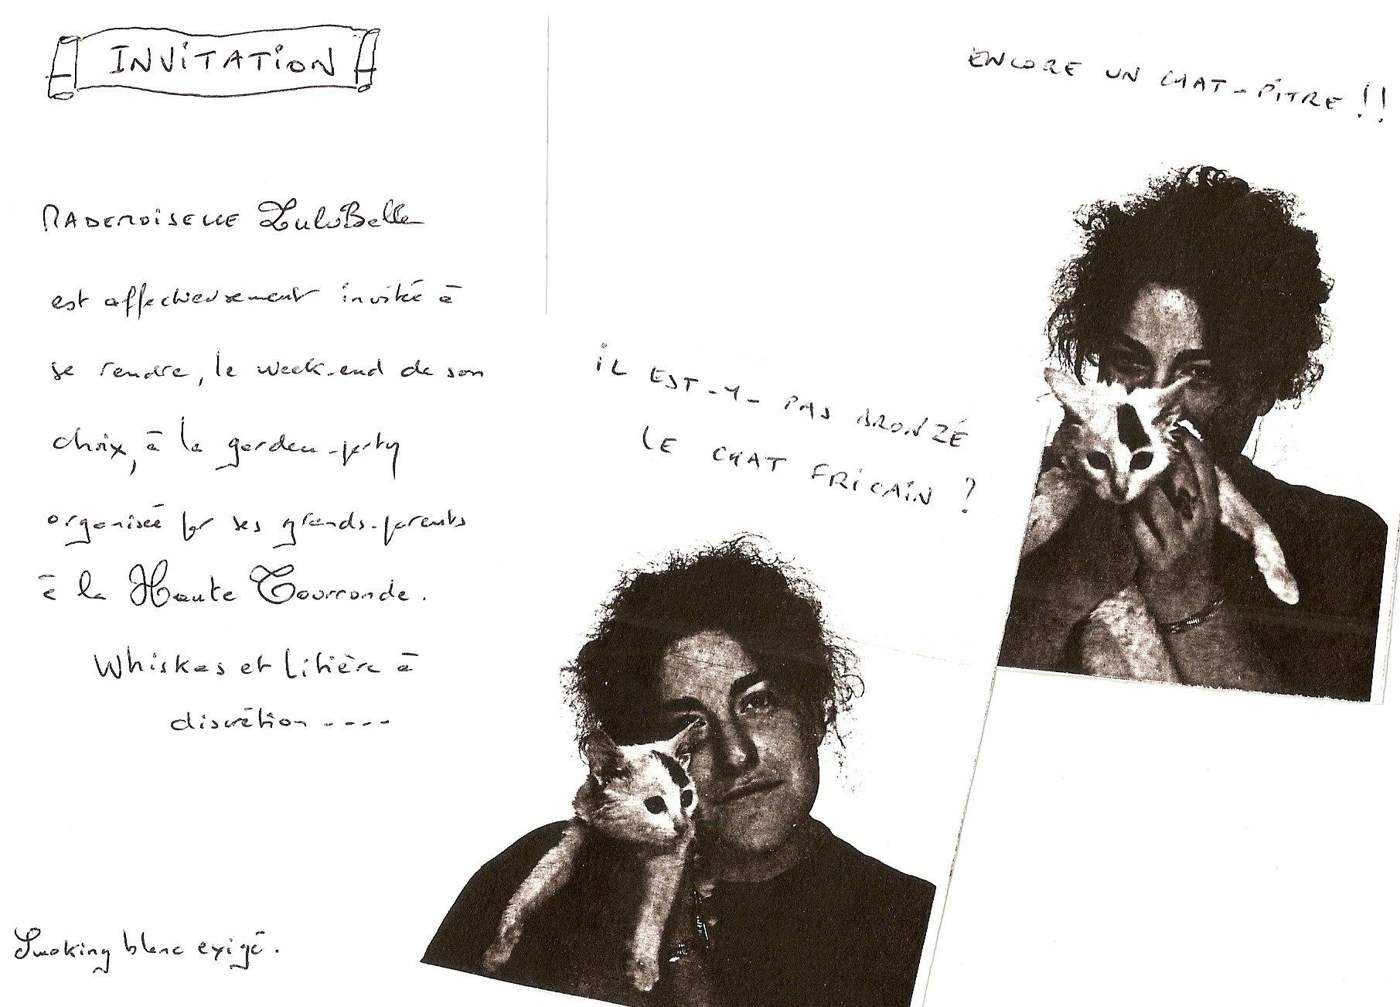 INVITATION
MADEMOISELLE LuluBelle
est affectueusement invitée à
se rendre, le week-end de son
choix, à la garden-party
organisée par ses grands-parents
à la Haute Tourronde.
Whiskas et Litière à
discrétion ----
Smoking blanc exigé.
ENCORE UN CHAT-PITRE !!
IL EST-Y-PAS BRONZÉ
LE CHAT FRICAIN ?